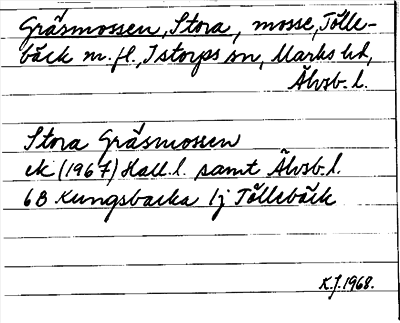 Gräsmossen, Stora, mosse, Tölle-
bäck m.fl., Istorps sn, Marks hd,
Älvsb. l.
Stora Gräsmossen
ek (1967) Hall. l. samt Älvsb. l.
6B Kungsbacka 1j Töllebäck
K.J. 1968.